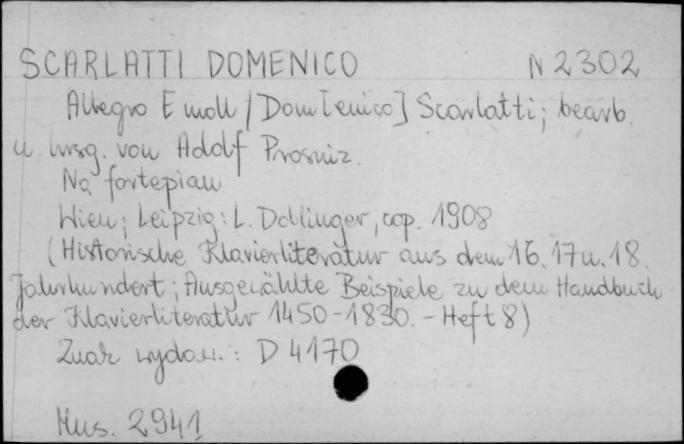 SCARLATTI DOMENICO N 2302
Allegro E moll / Dom[enico] Scarlatti; bearb.
u. hrsg. von Adolf Prosniz.
Na fortepian
Wien; Leipzig: L. Doblinger, cop. 1908
(Historische Klavierliteratur aus dem 16. 17 u. 18.
Jahrhundert; Ausgewählte Beispiele zu dem Handbuch
der Klavierliteratur 1450-1830. - Heft 8)
Znak wydaw.: D 4170
Mus. 2941